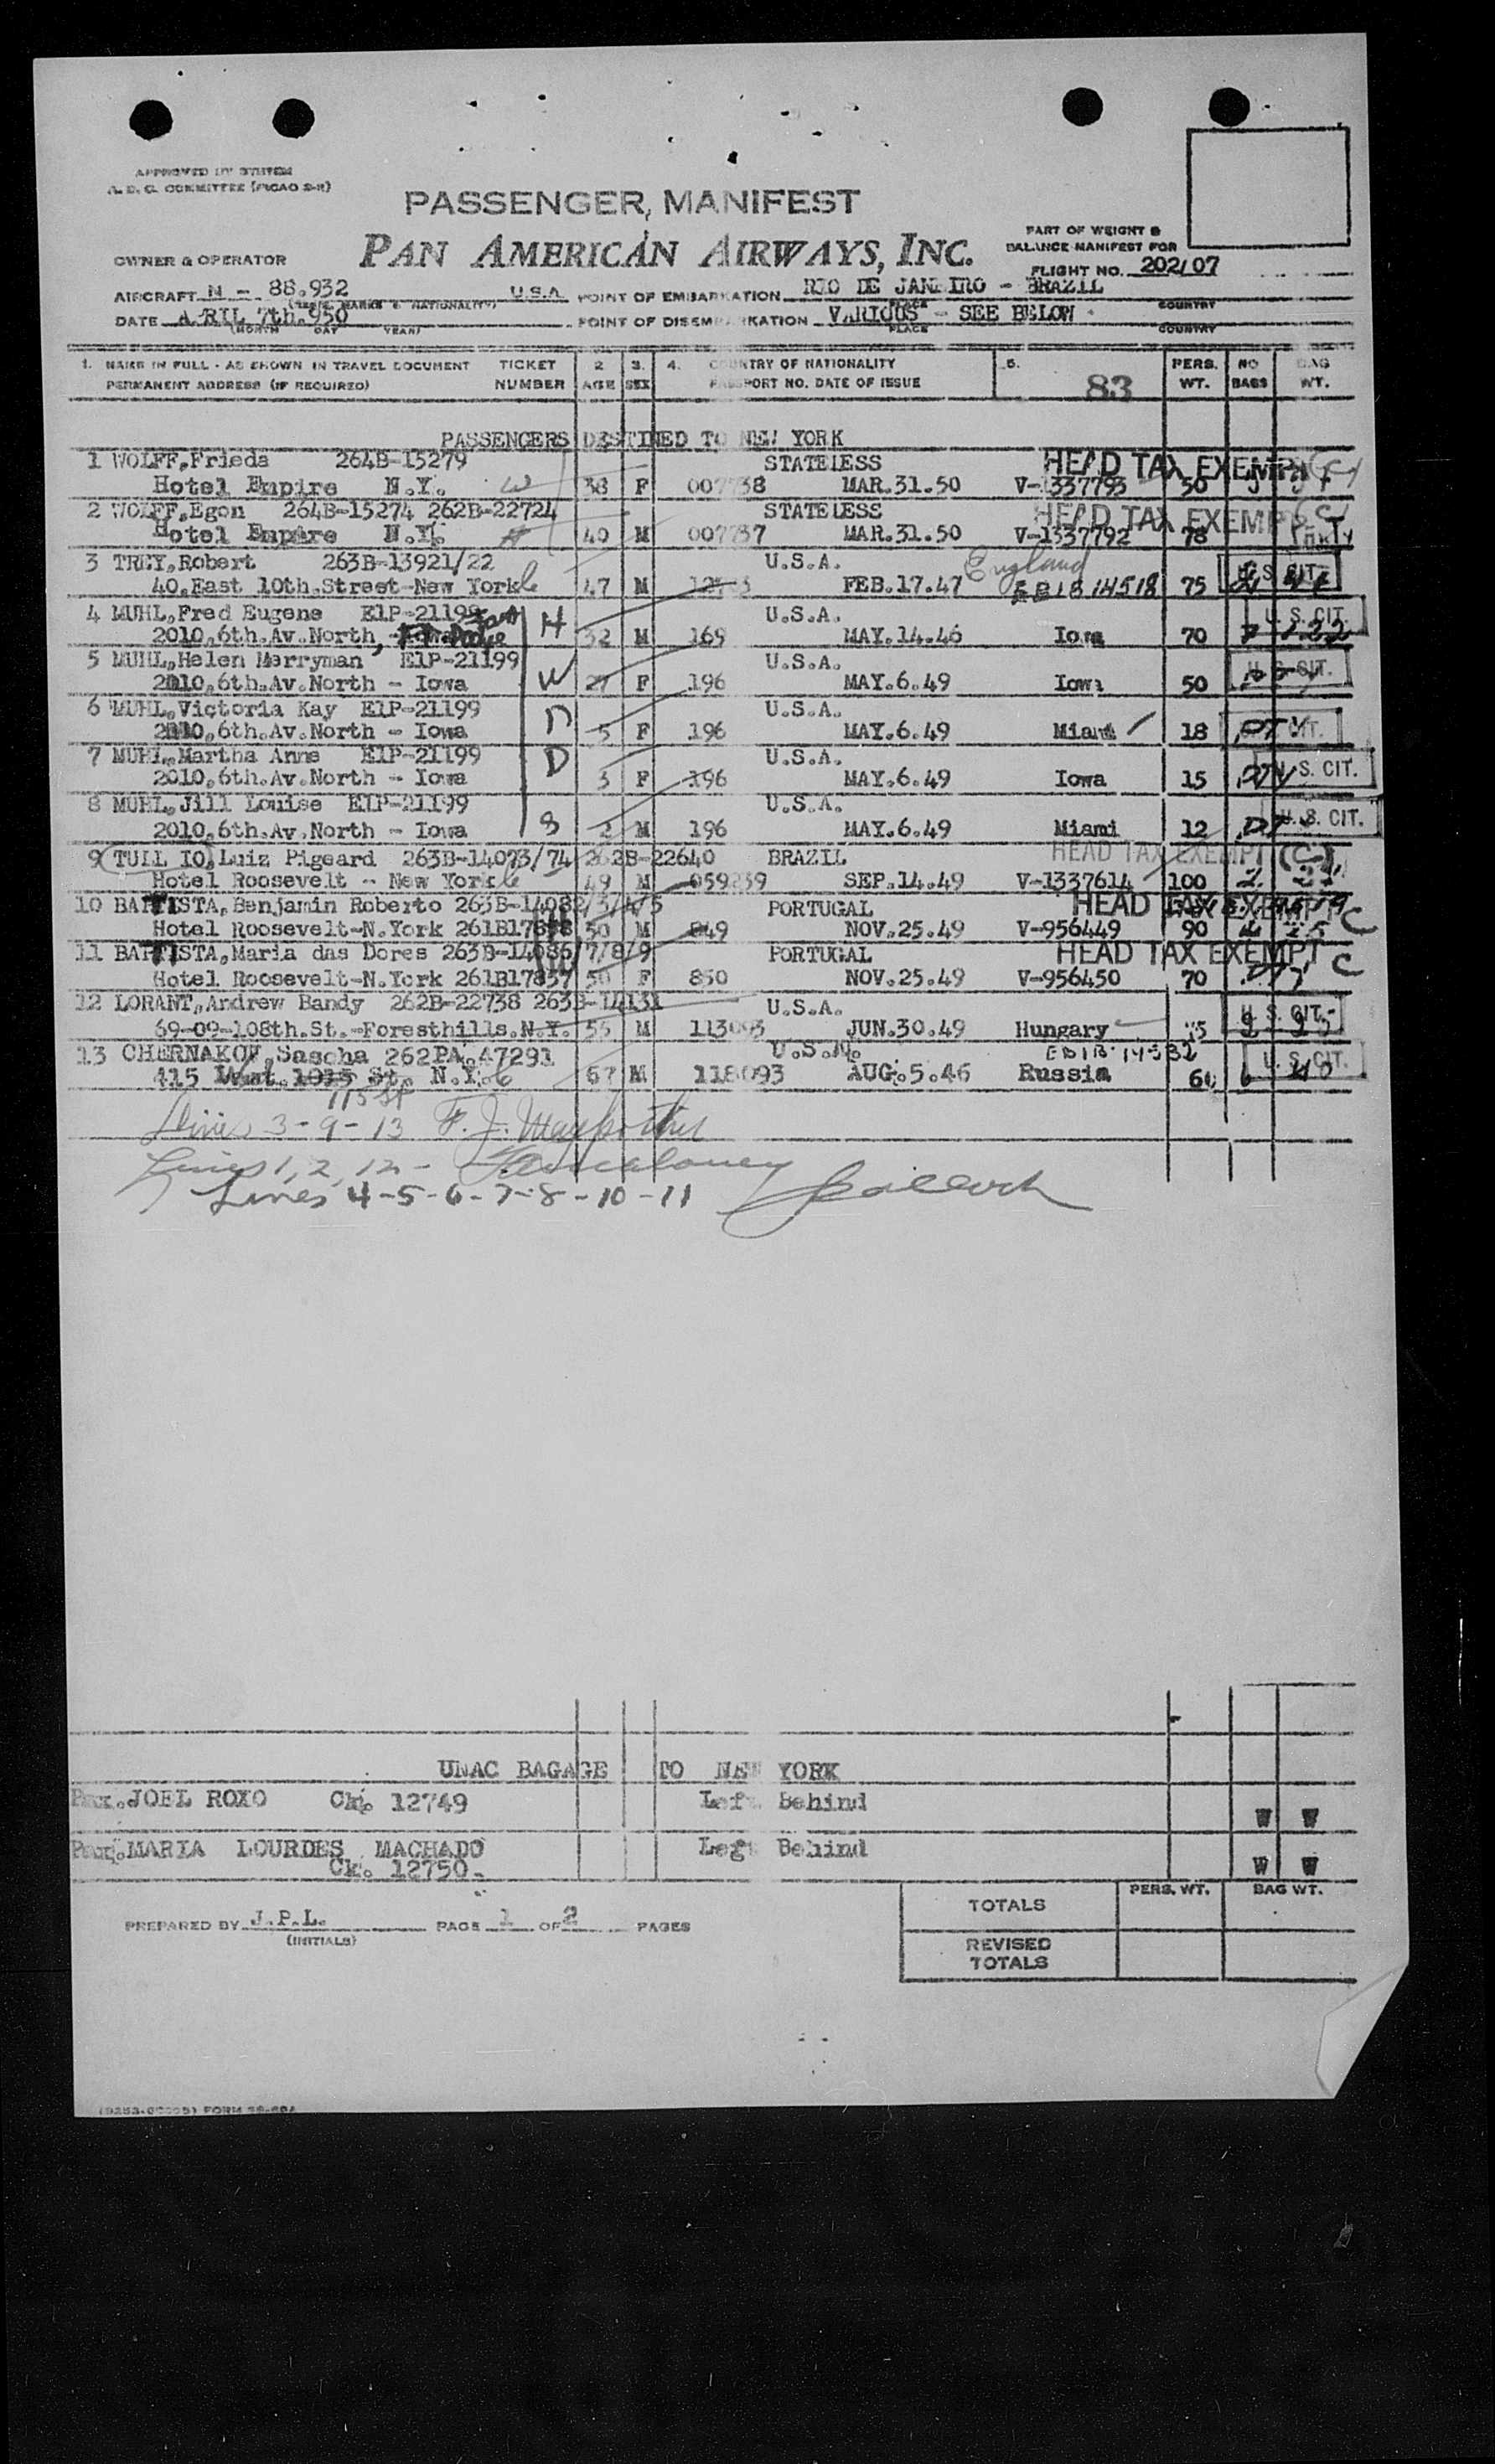 APPROVED BY SYSTEM
A. D. C. COMMITTEE (PICAO 2-R)
PASSENGER MANIFEST
PAN AMERICAN AIRWAYS, INC.
OWNER & OPERATOR
PART OF WEIGHT &
BALANCE MANIFEST FOR
FLIGHT NO. 202/07
AIRCRAFT N - 88.932 U.S.A POINT OF EMBARKATION RIO DE JANEIRO - BRAZIL
MARKS & NATIONALITY) PLACE COUNTRY
DATE A RIL 7th.950 POINT OF DISEMBARKATION VARIOUS - SEE BELOW
(MONTH DAY YEAR) PLACE COUNTRY
1. NAME IN FULL - AS SHOWN IN TRAVEL DOCUMENT TICKET 2 3. 4. COUNTRY OF NATIONALITY 5. PERS. NO BAG
PERMANENT ADDRESS (IF REQUIRED) NUMBER AGE SEX PASSPORT NO. DATE OF ISSUE 83 WT. BAGS WT.
PASSENGERS DESTINED TO NEW YORK
1 WOLFF,Frieda 264B-15279 STATELESS HEAD TAX EXEMPT
Hotel Empire N.Y. W 38 F 007738 MAR.31.50 V-1337793 50
2 WOLFF,Egon 264B-15274 262B-22724 STATELESS HEAD TAX EXEMPT
Hotel Empire N.Y. H 40 M 007737 MAR.31.50 V-1337792 78
3 TREY,Robert 263B-13921/22 U.S.A. England U.S. CIT.
40.East 10th.Street-New York 47 M FEB.17.47 EB1B 14518 75
4 MUHL,Fred Eugene E1P-21199 H U.S.A. U.S. CIT.
2010,6th.Av.North, 32 M 169 MAY.14.46 Iowa 70
5 MUHL,Helen Merryman E1P-21199 U.S.A. U.S. CIT.
2010,6th.Av.North - Iowa W 27 F 196 MAY.6.49 Iowa 50
6 MUHL,Victoria Kay E1P-21199 U.S.A.
2010,6th.Av.North - Iowa D 5 F 196 MAY.6.49 Miami 18 CIT.
7 MUHL,Martha Anne E1P-21199 D U.S.A. U.S. CIT.
2010,6th.Av.North - Iowa 3 F 196 MAY.6.49 Iowa 15
8 MUHL,Jill Louise E1P-21199 U.S.A. U.S. CIT.
2010,6th.Av.North - Iowa S 2 M 196 MAY.6.49 Miami 12
9 TULL IO,Luiz Pigeard 263B-14073/74 262B-22640 BRAZIL HEAD TAX EXEMPT (C-)
Hotel Roosevelt - New York 49 M 059259 SEP.14.49 V-1337614 100 2
10 BAPTISTA,Benjamin Roberto 263B-14082/3/4/5 PORTUGAL HEAD TAX EXEMPT C
Hotel Roosevelt-N.York 50 M 849 NOV.25.49 V-956449 90
11 BAPTISTA,Maria das Dores 263B-14086/7/8/9 PORTUGAL HEAD TAX EXEMPT C
Hotel Roosevelt-N.York 261B17857 50 F 850 NOV.25.49 V-956450 70
12 LORANT,Andrew Bandy 262B-22738 263B-14131 U.S.A. U.S. CIT.
69-09-108th.St.-Foresthills.N.Y. 55 M JUN.30.49 Hungary 75
13 CHERNAKOV,Sascha 262PA.47291 U.S.A. EB1B-14532 U.S. CIT.
415 West. 1015 St. N.Y. 67 M 118093 AUG.5.46 Russia 60
115 St
Lines 3-9-13
Lines 1, 2, 12 -
Lines 4-5-6-7-8-10-11
UNAC BAGAGE TO NEW YORK
Pax.JOEL ROXO Ck. 12749 Left Behind W W
Pax.MARIA LOURDES MACHADO Left Behind
Ck. 12750. W W
PREPARED BY J.P.L. PAGE 1 OF 2 PAGES
(INITIALS)
PERS. WT. BAG WT.
TOTALS
REVISED
TOTALS